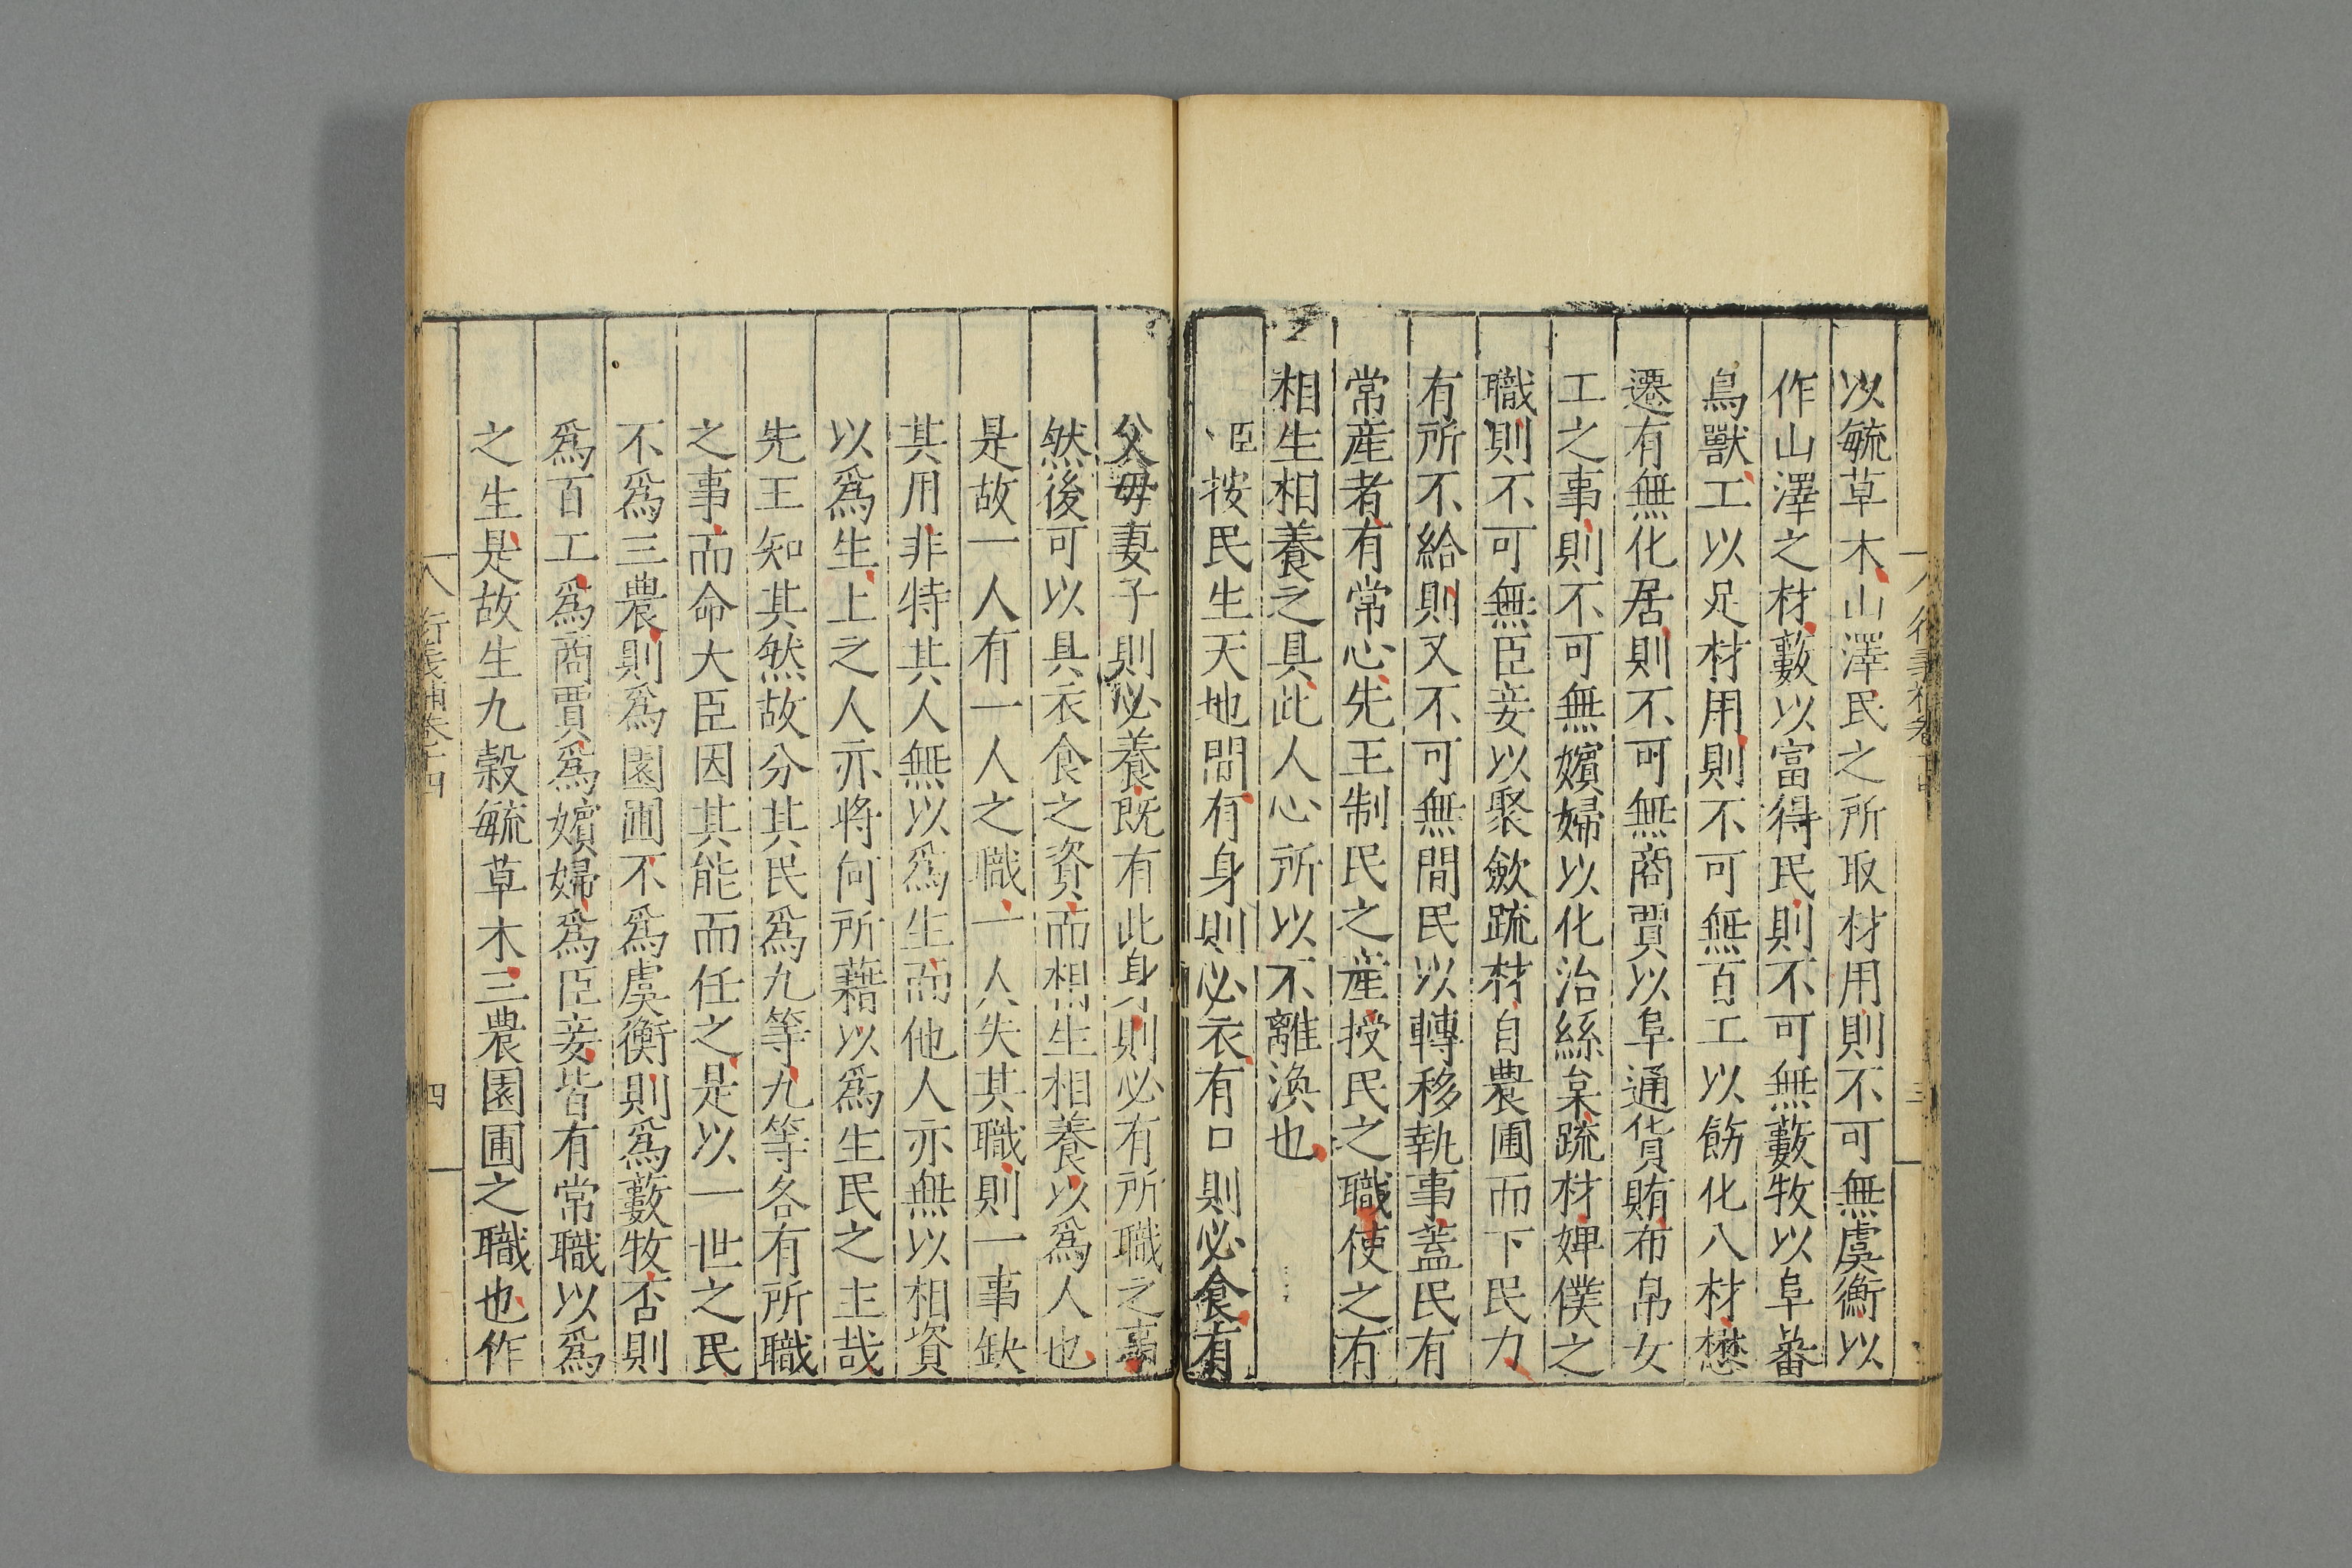 以毓草木山澤民之所取材用則不可無虞衡以
作山澤之材藪以富得民則不可無藪牧以阜蕃
鳥獸工以足材用則不可無百工以飭化八材懋
遷有無化居則不可無商賈以阜通貨賄布帛女
工之事則不可無嬪婦以化治絲枲疏材婢僕之
職則不可無臣妾以聚斂疏材自農圃而下民力
有所不給則又不可無間民以轉移執事蓋民有
常産者有常心先王制民之産授民之職使之有
相生相養之具此人心所以不離渙也
臣按民生天地間有身則必衣有口則必食有
父毋妻子則必養既有此身則必有所職之事
然後可以具衣食之資而相生相養以爲人也
是故一人有一人之職一人失其職則一事缺
其用非特其人無以爲生而他人亦無以相資
以爲生上之人亦將何所藉以爲生民之主哉
先王知其然故分其民爲九等九等各有所職
之事而命大臣因其能而任之是以一世之民
不爲三農則爲園圃不爲虞衡則爲藪牧否則
爲百工爲商賈爲嬪婦爲臣妾皆有常職以爲
之生是故生九穀毓草木三農園圃之職也作
衍義補卷十四
四